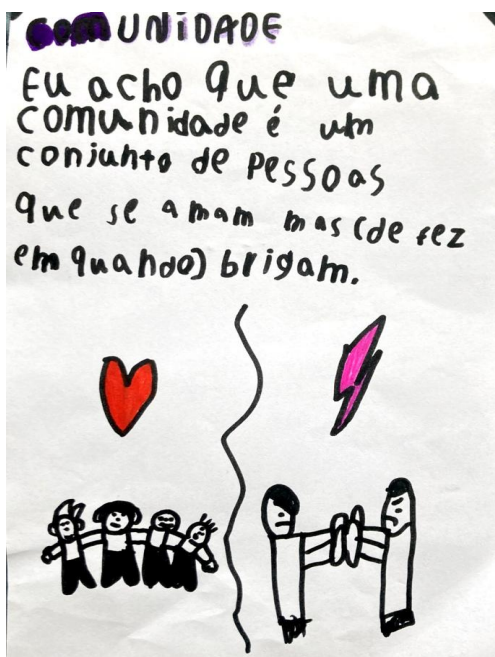 COMUNiDADE
Eu acho que uma
comunidade é um
conjunto de pessoas
que se amam mas (de fez
em quando) brigam.